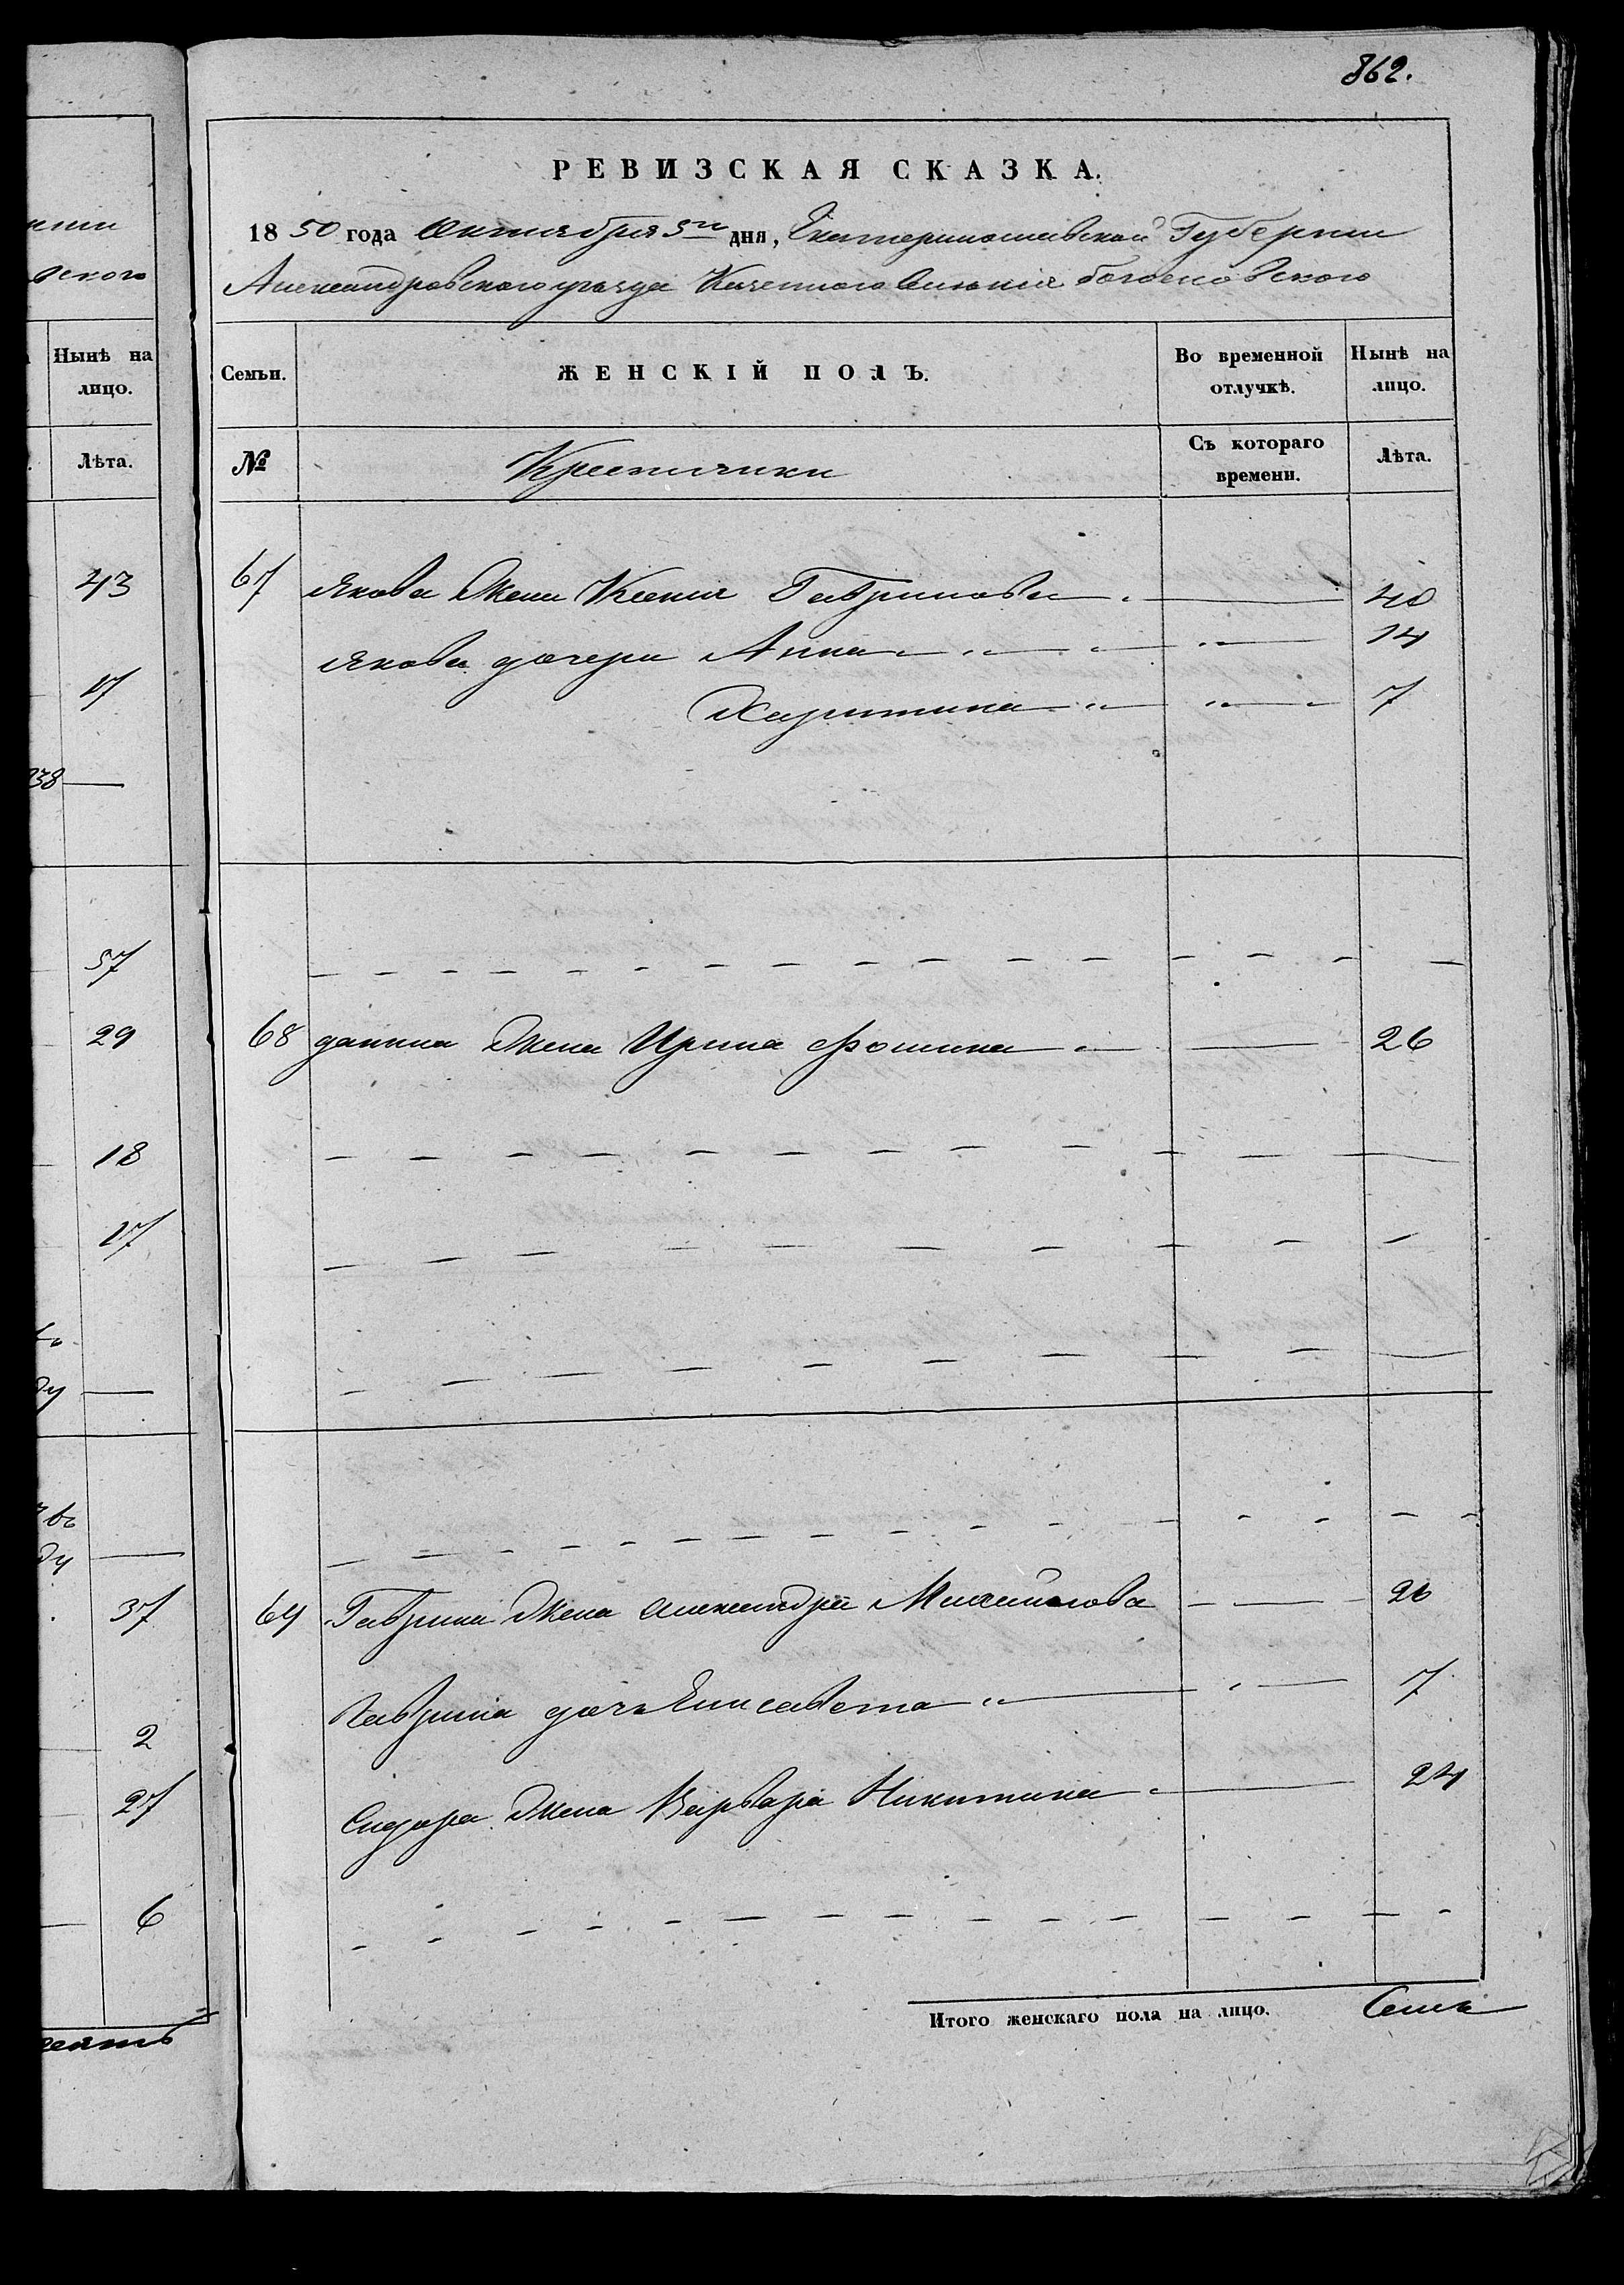 862.
нии
вского
Нынѣ на
лицо.
Лѣта.
43
17
838
57
29
18
17
ду
ду
37
2
27
6
РЕВИЗСКАЯ СКАЗКА.
1850 года Октября 5го дня, Екатеринославской Губернии
Александровского уѣзда Казенного селенія Богословского
Семьи.
ЖЕНСКІЙ ПОЛЪ.
Во временной отлучкѣ.
Нынѣ на лицо.
№
Крестьянки
Съ котораго времени.
Лѣта.
67 Якова Жена Ксения Гаврилова 40
Якова дочери Анна 14
Харитина 7
68 данила Жена Ирина Фомина 26
69 Гаврила Жена Александра Михайлова 26
Гаврила дочь Елисавета 7
Сидора Жена Варвара Никитина 24
Итого женскаго пола на лицо. Семь